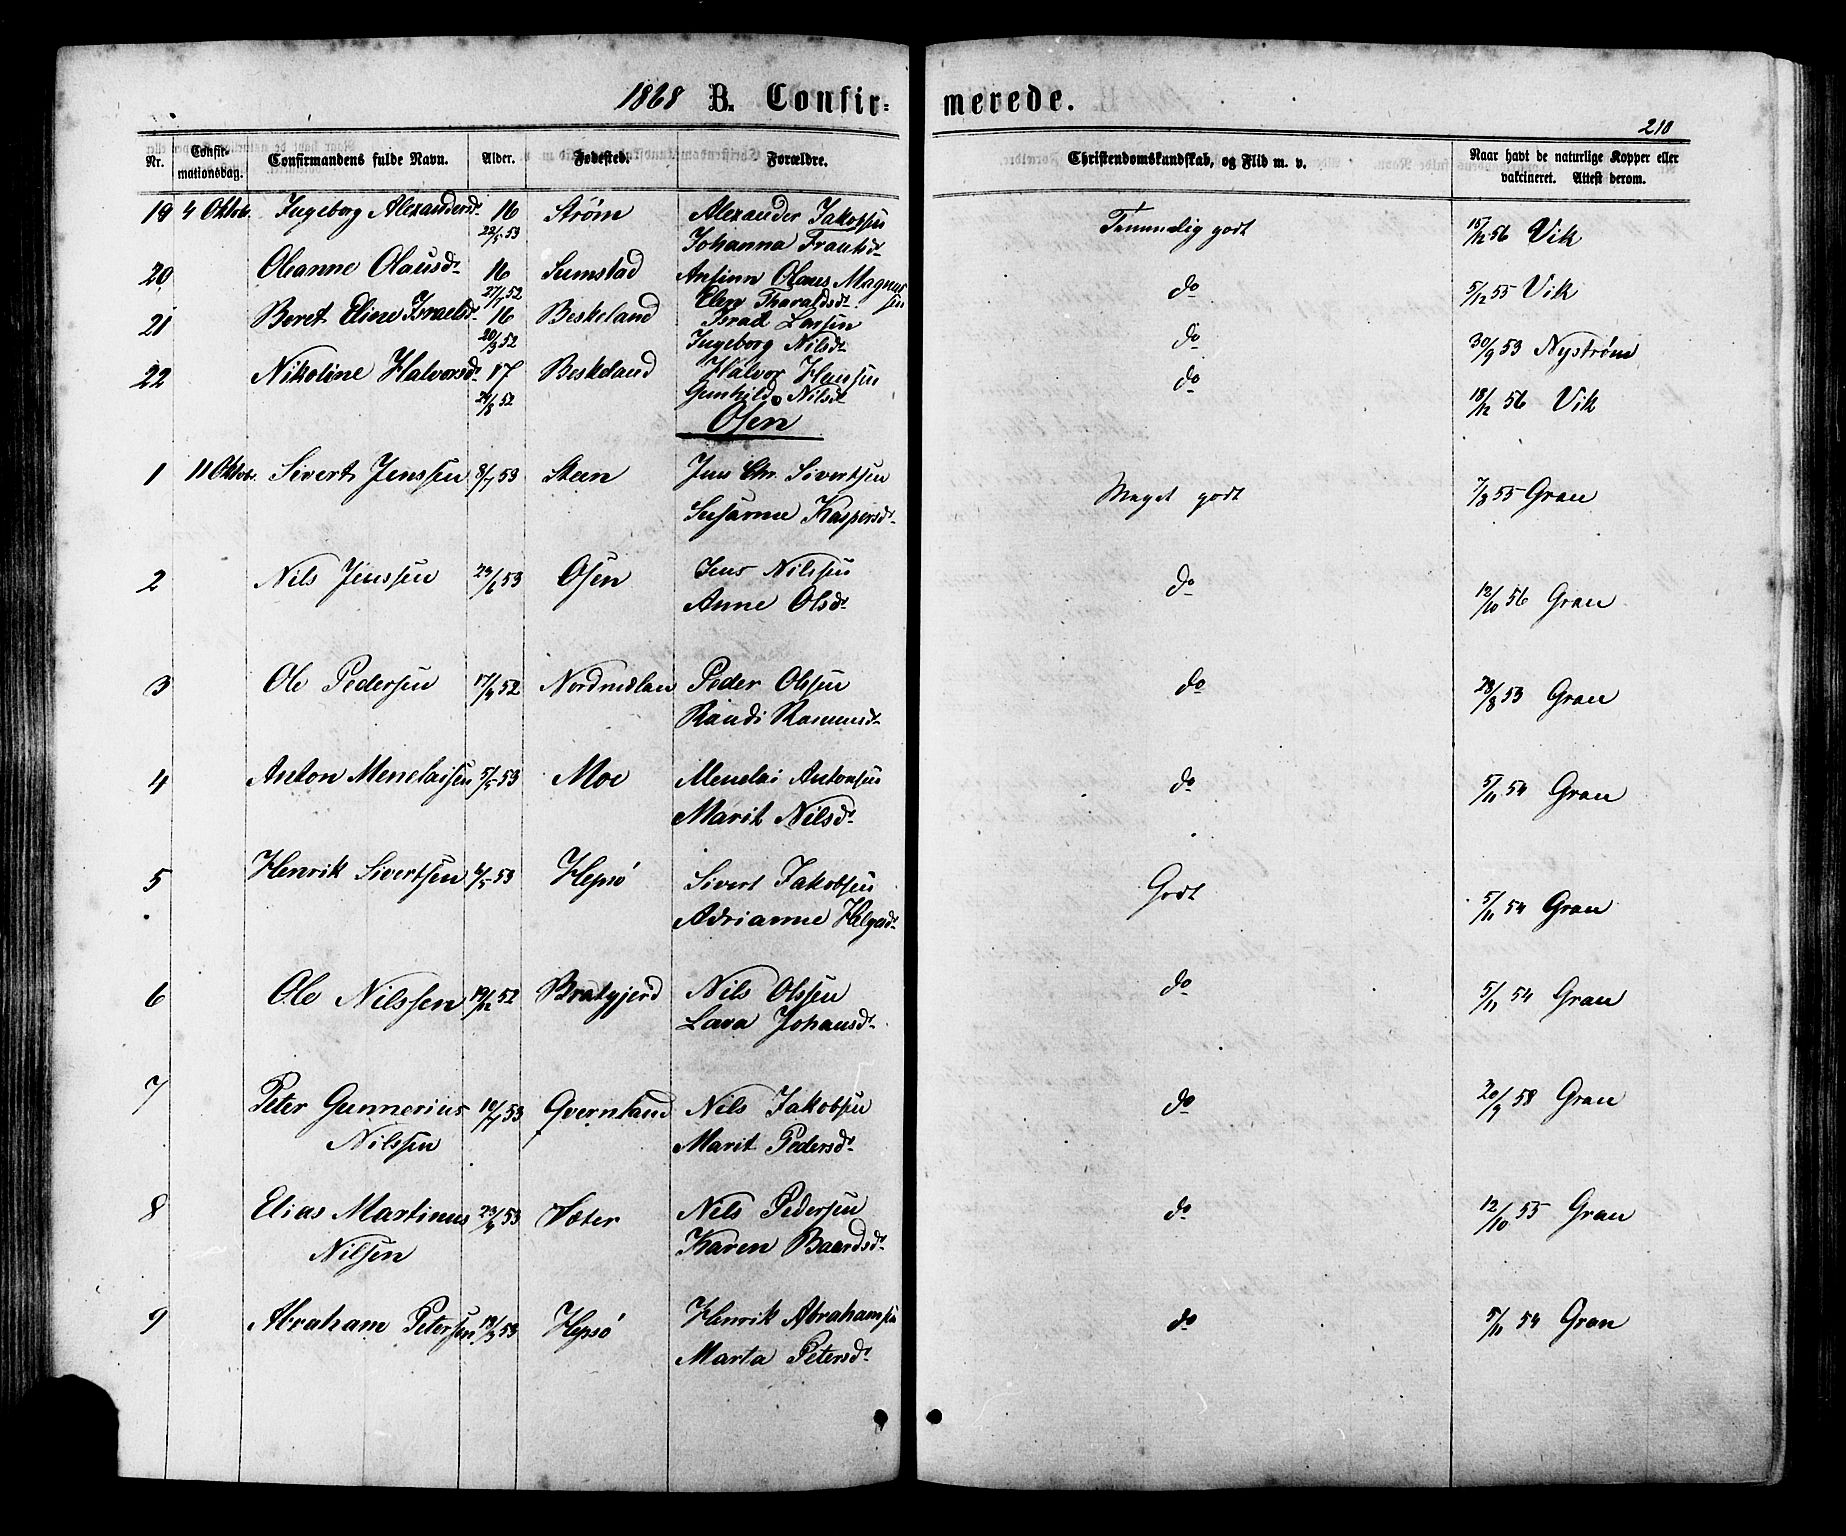 1868 B. Confir= merede.
210
Nr. Confirmationsdag. Confirmandens fulde Navn. Alder. Fødested. Forældre. Christendomskundskab, og Flid m. v. Naar havt de naturlige Kopper eller vakcineret. Attest derom.
19 4 Oktob. Ingeborg Alexandersd. 16 Strøm Alexander Jakobsen Temmelig godt 15/12 56 Vik
22/5 53 Johanna Frantsd.
20 Oleanne Olausd. 16 Sumstad Antinn Olaus Magnussen do 5/12 55 Vik
27/7 52 Elen Tharaldsd.
21 Beret Eline Israelsd. 16 Beskeland Israel Larsen do 30/9 53 Nystrøm
20/3 52 Ingeborg Nilsd.
22 Nikoline Halvorsd. 17 Beskeland Halvor Hansen do 18/12 56 Vik
21/8 52 Gunhild Nilsd.
Osen
1 11 Oktob. Sivert Jenssen 8/7 53 Steen Jens Chr. Sivertsen Meget godt 7/8 55 Gran
Susanne Kaspersd.
2 Nils Jenssen 23/6 53 Osen Jens Nilssen do 12/10 56 Gran
Anne Olsd.
3 Ole Pedersen 17/9 52 Nordmelan Peder Olssen do 23/8 53 Gran
Randi Rasmusd.
4 Anton Menelaisen 5/5 53 Moe Menelai Antonsen do 5/11 54 Gran
Marit Nilsd.
5 Henrik Sivertsen 6/5 53 Hepsø Sivert Jakobsen Godt 5/11 54 Gran
Adrianne Helgesd.
6 Ole Nilssen 19/12 52 Bratgjerd Nils Olssen do 5/11 54 Gran
Lava Johansd.
7 Peter Gunnerius 10/7 53 Qvernland Nils Jakobsen do 20/9 58 Gran
Nilssen Marit Pedersd.
8 Elias Martinus 23/9 53 Sæter Nils Pedersen do 12/10 55 Gran
Nilsen Karen Baardsd.
9 Abraham Petersen 13/3 53 Hepsø Henrik Abrahamsen do 5/11 54 Gran
Marta Petersd.